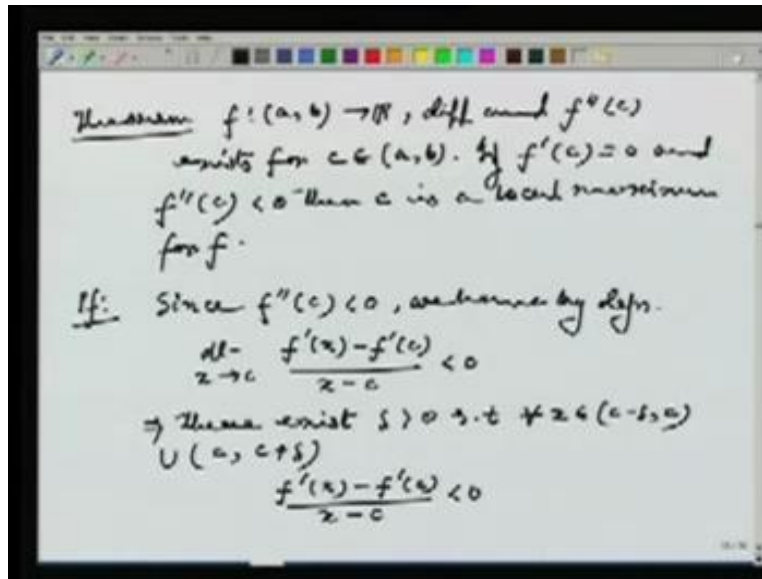 Theorem f : (a, b) → ℝ, diff and f''(c)
exists for c ∈ (a, b). If f'(c) = 0 and
f''(c) < 0 then c is a local maximum
for f.
Pf: Since f''(c) < 0, we have by defn.
lt x→c (f'(x) - f'(c))/(x - c) < 0
⇒ there exist δ > 0 s.t ∀ x ∈ (c-δ, c)
∪ (c, c+δ)
(f'(x) - f'(c))/(x - c) < 0